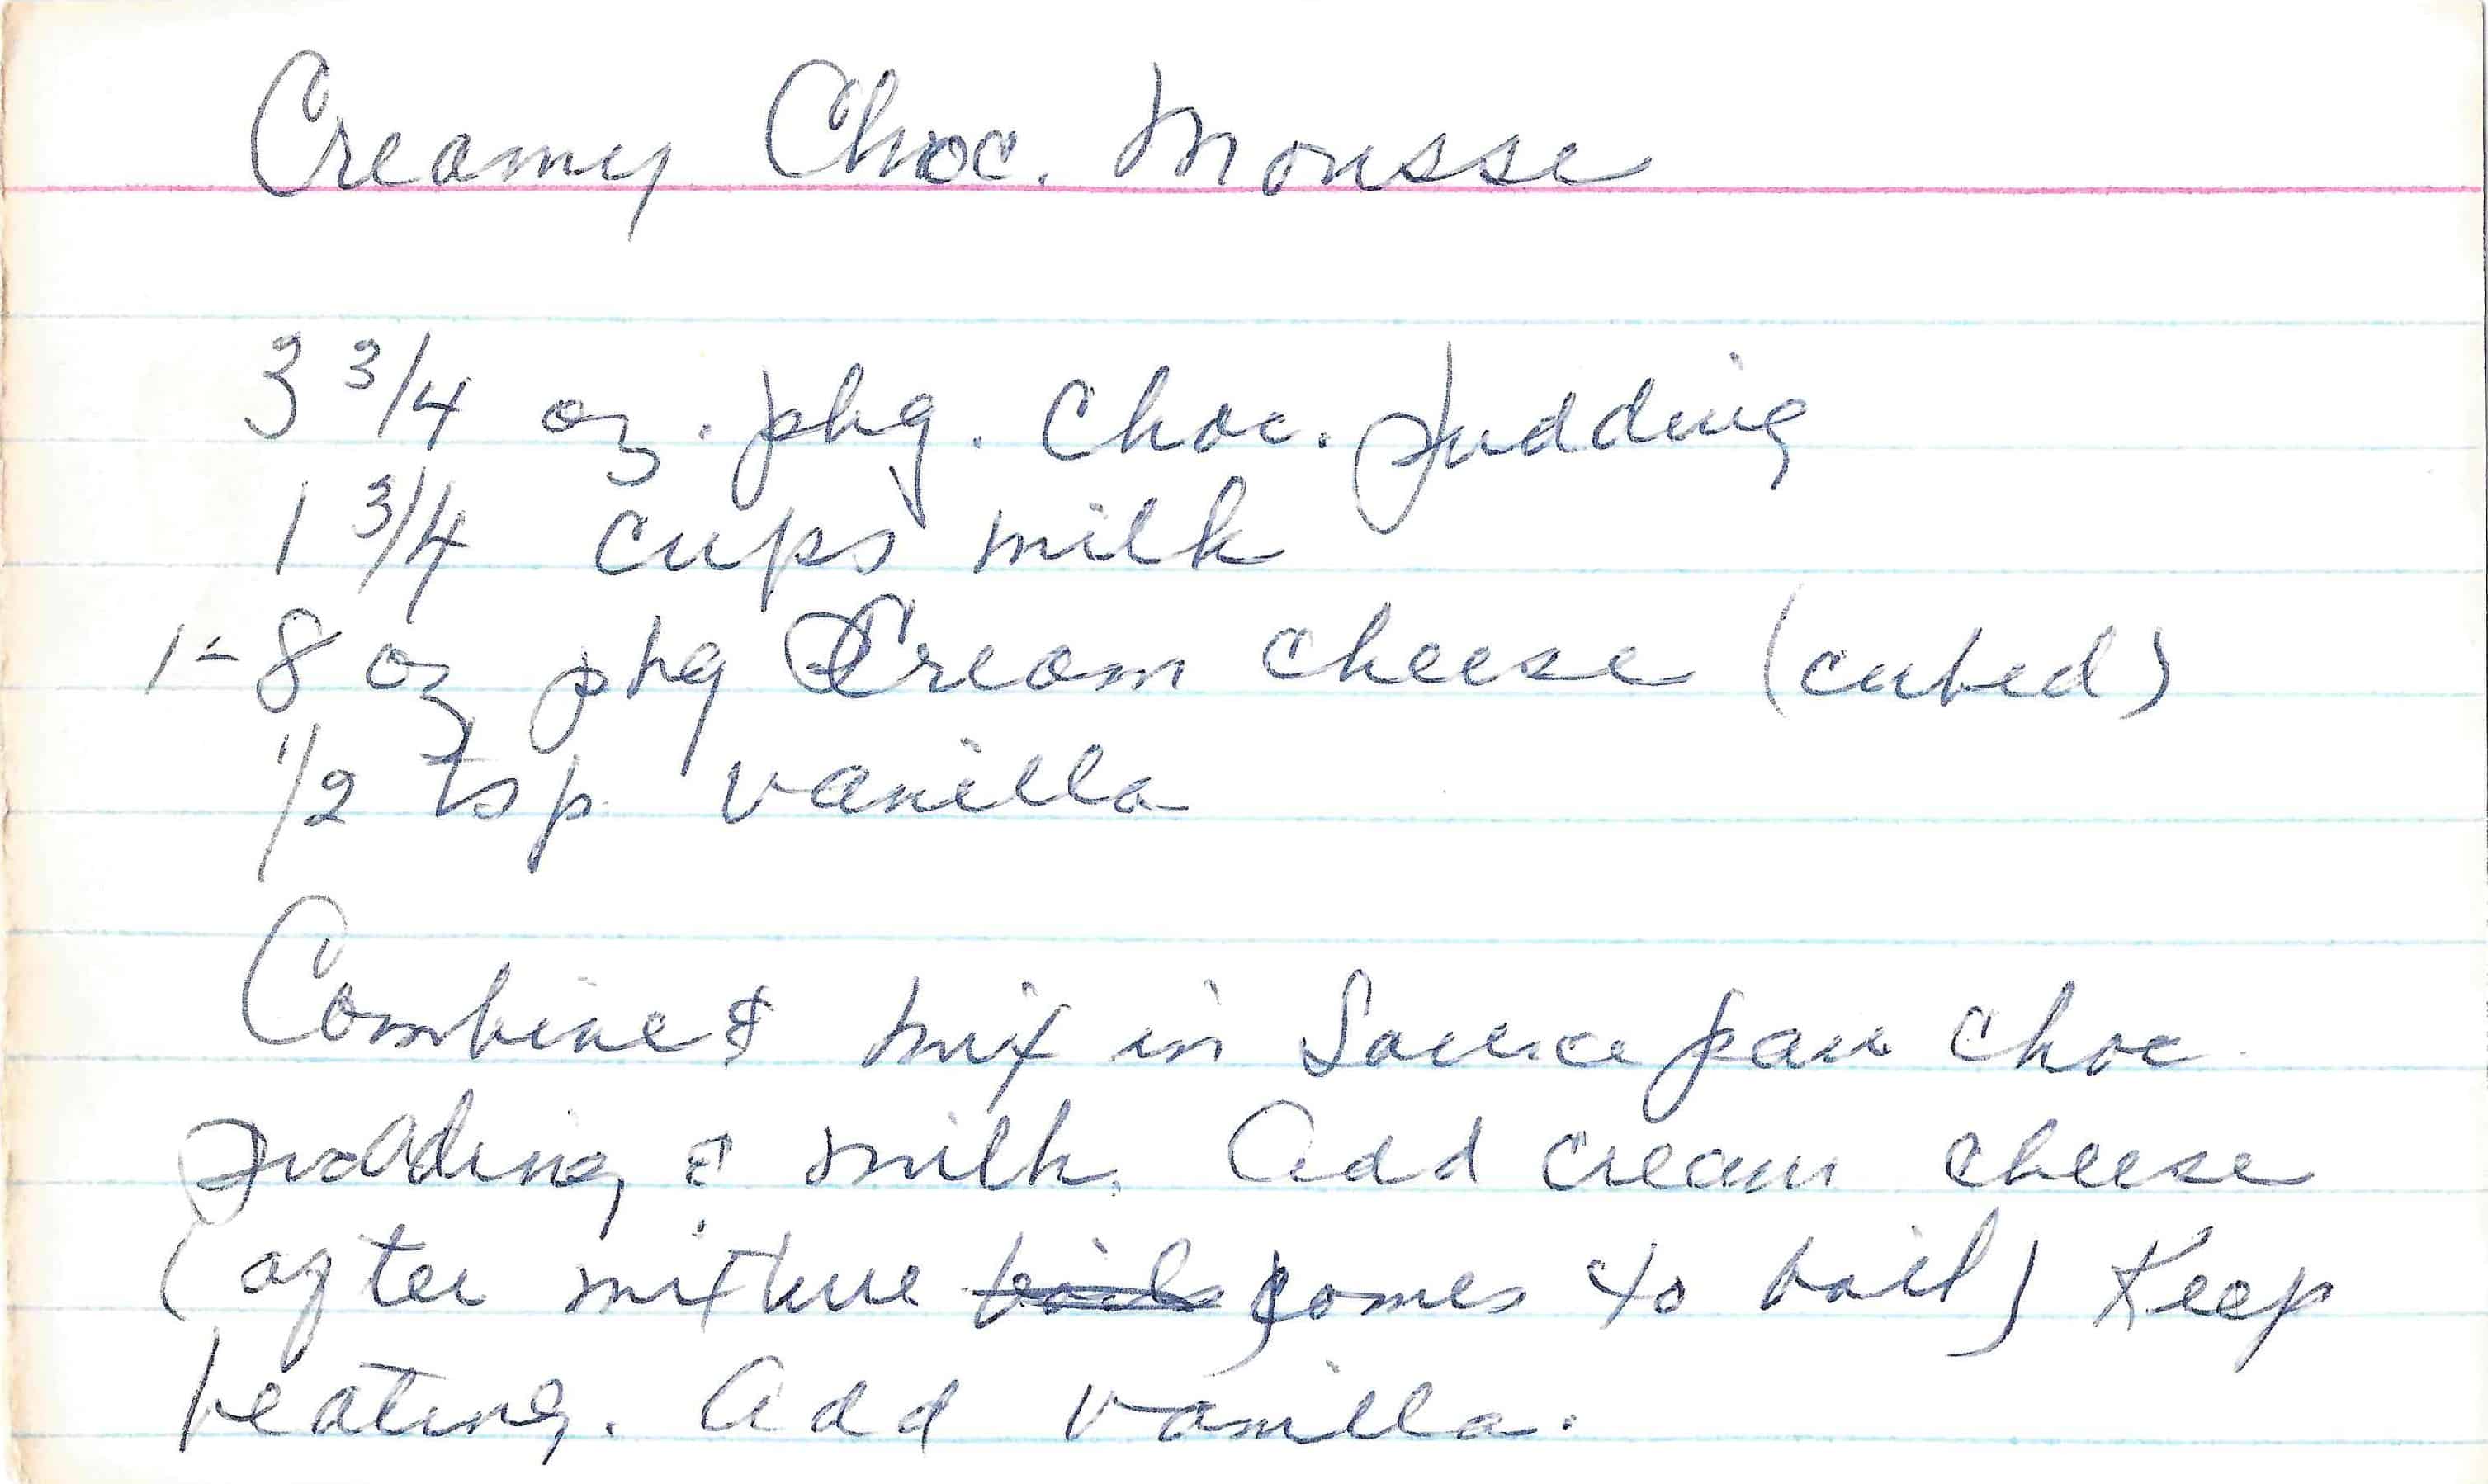 Creamy Choc. Mousse
3 3/4 oz. pkg. Choc. pudding
1 3/4 cups milk
1-8 oz pkg Cream cheese (cubed)
1/2 tsp vanilla
Combine & mix in Sauce pan choc.
pudding & milk. Add cream cheese
(after mixture boils comes to boil) Keep
beating. Add vanilla.